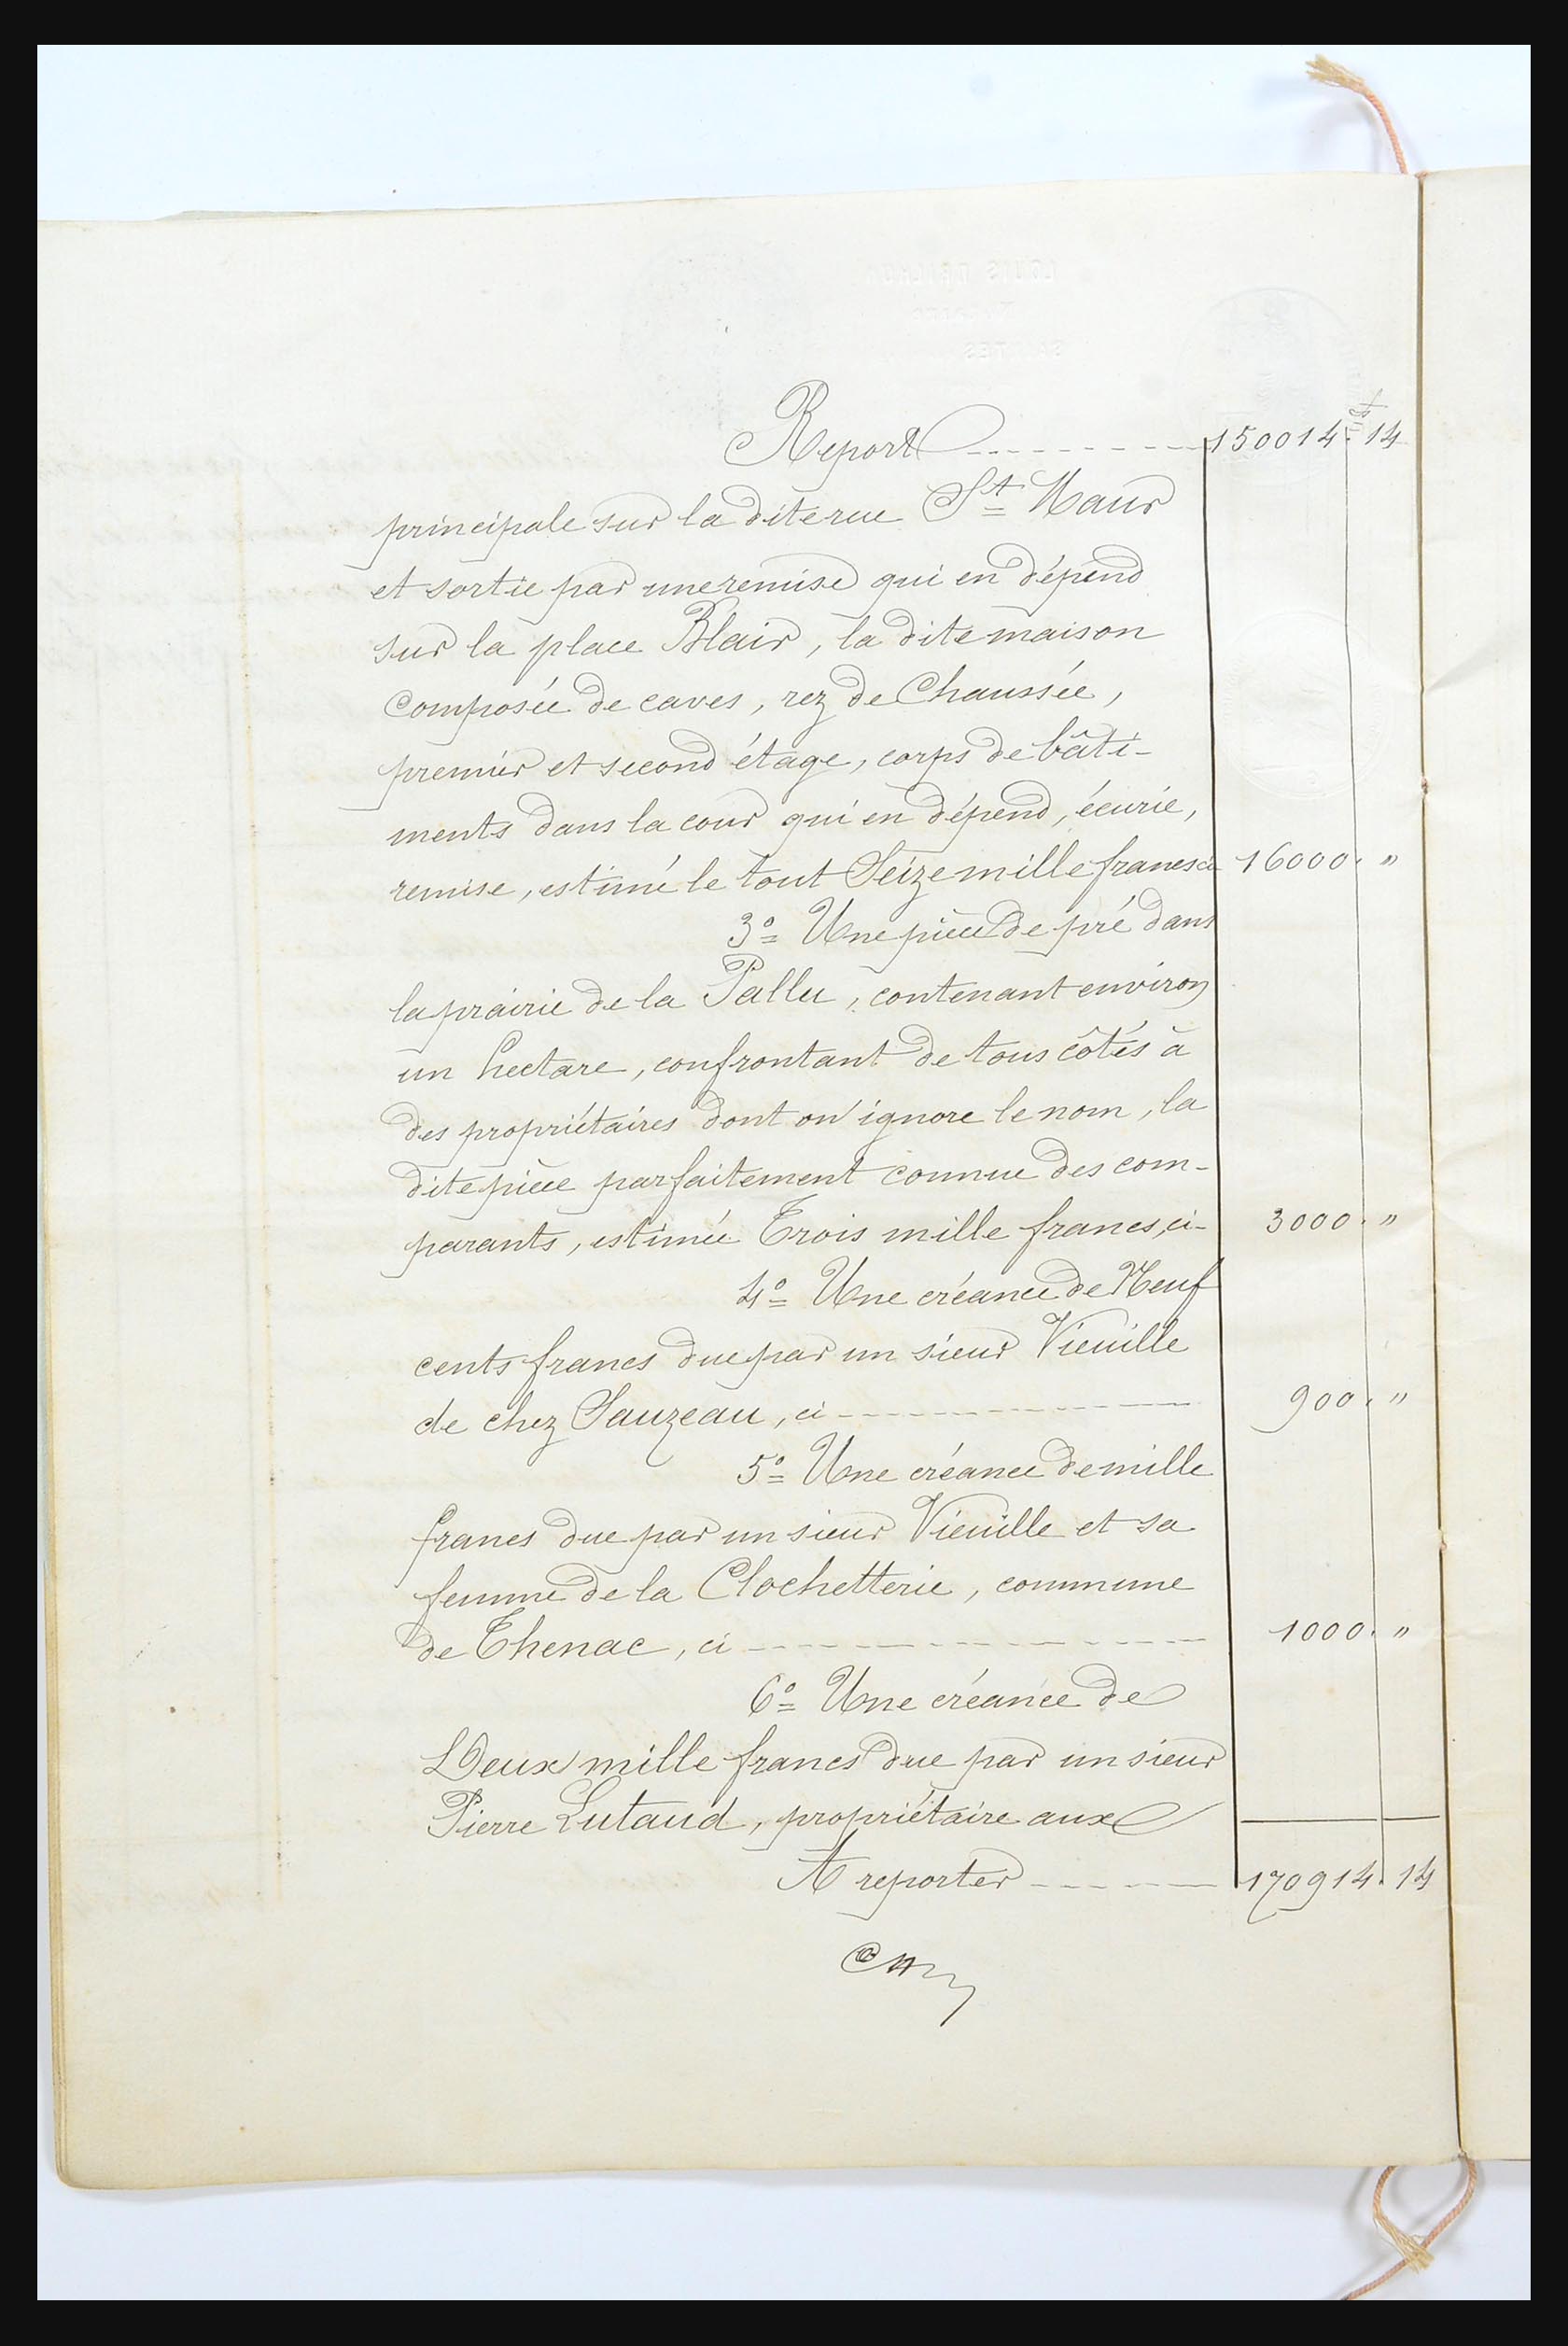 Report --------- 150014 f. 14
principale sur la dite rue St Maur
et sortie par une remise qui en dépend
sur la place Blair, la dite maison
composée de caves, rez de Chaussée,
premier et second étage, corps de bâti-
ments dans la cour qui en dépend, écurie,
remise, estimé le tout Seize mille francs ci 16000. "
3o Une pièce de pré dans
la prairie de la Pallu, contenant environ
un hectare, confrontant de tous côtés à
des propriétaires dont on ignore le nom, la
dite pièce parfaitement connue des com-
parants, estimée Trois mille francs, ci- 3000. "
4o Une créance de Neuf
cents francs due par un sieur Vieuille
de chez Sauzeau, ci ---------- 900. "
5o Une créance de mille
francs due par un sieur Vieuille et sa
femme de la Clochetterie, commune
de Thenac, ci ---------- 1000. "
6o Une créance de
Deux mille francs due par un sieur
Pierre Lutaud, propriétaire aux
A reporter ------ 170914. 14
LOUIS
SAINTES